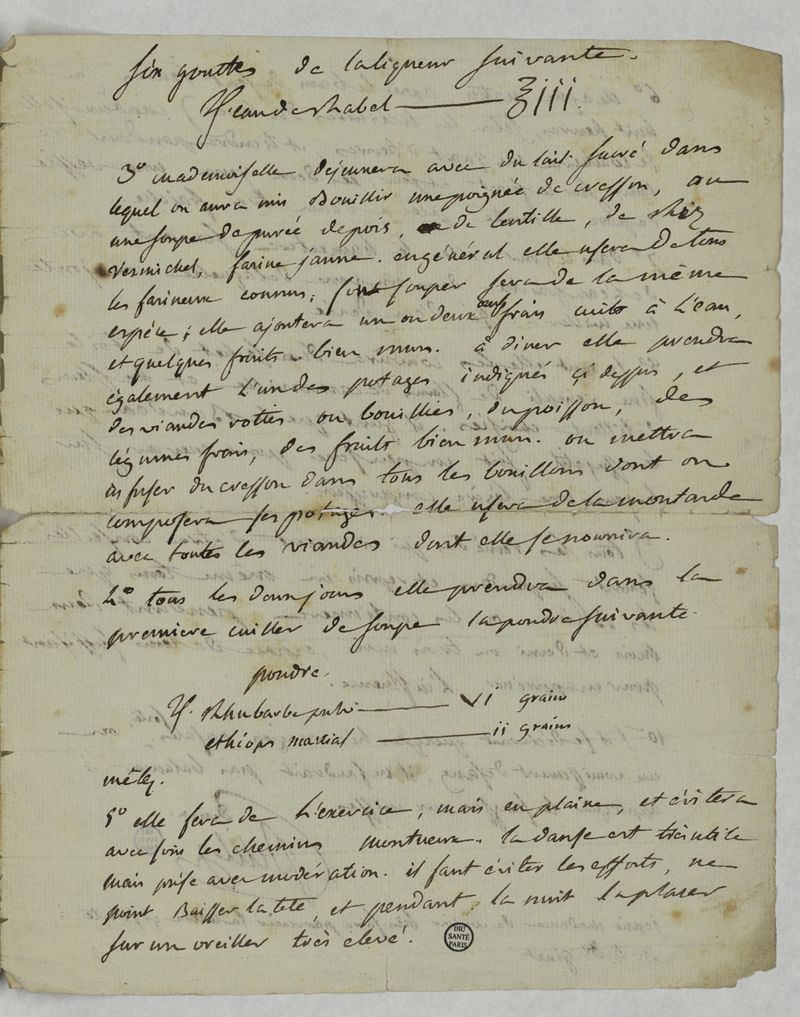 six gouttes de la liqueur suivante.
♃ eau de rhabel — ʒiii.
3° mademoiselle dejeunera avec du lait sucré dans
lequel on aura mis Bouillir une poignée de cresson, ou
une soupe de purée de pois, de lentille, de rhiz
vermichel, farine jaune. en général elle usera de tous
les farineux connus; son souper sera de la même
espèce; elle ajoutera un ou deux œufs frais cuits à L'eau,
et quelques fruits bien murs. à diner elle prendra
également L'un des potages indiqués çi dessus, et
des viandes roties ou bouillies, du poisson, des
légumes frais, des fruits bien murs. on mettra
infuser du cresson dans tous les bouillons dont on
composera ses potages. elle usera de la moutarde
avec toutes les viandes dont elle se nourrira.
4° tous les deux jours elle prendra dans la
premiere cuiller de soupe la poudre suivante
poudre.
♃ rhubarbe pulv. — vi grains
ethiops martial — ii grains
mêlez.
5° elle fera de L'exercice, mais en plaine, et évitera
avec soin les chemins montueux. la danse est très utile
mais prise avec modération. il faut éviter les efforts, ne
point Baisser la tete, et pendant la nuit la placer
sur un oreiller très elevé.
BIU
SANTÉ
PARIS